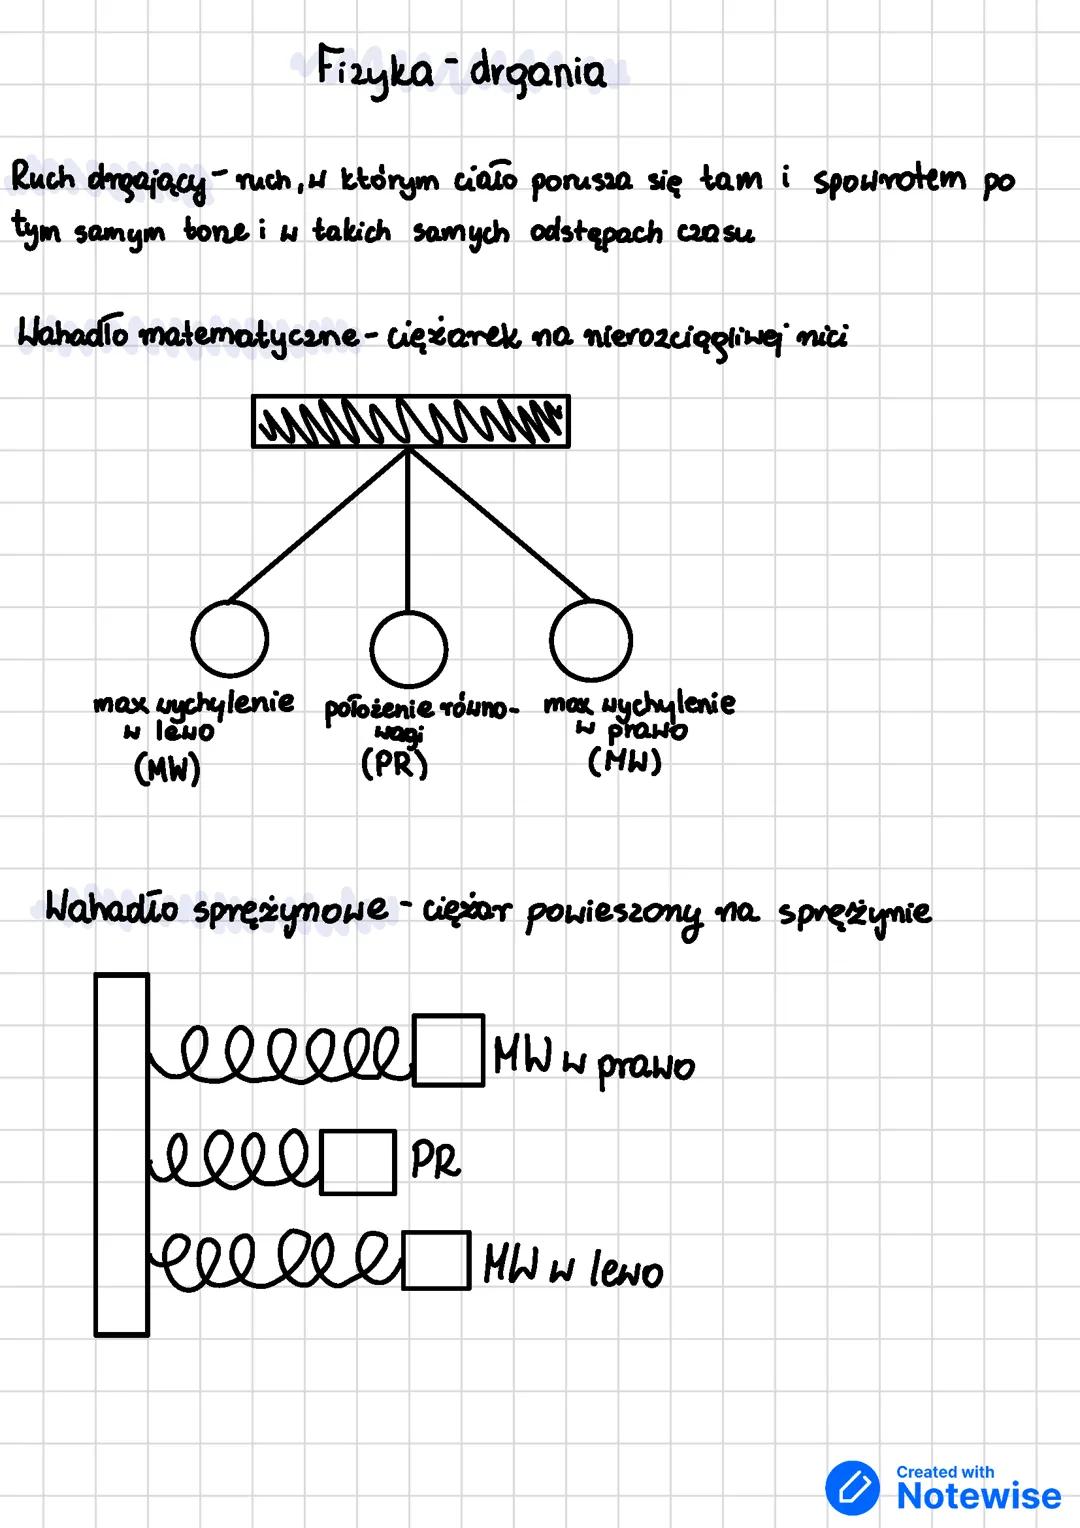 Fizyka - drgania
Ruch drgający - ruch, w którym ciało porusza się tam i spowrotem po
tym samym torze i w takich samych odstępach czasu
Wahadło matematyczne - ciężarek na nierozciągliwej nici
max wychylenie położenie równo- max wychylenie
w lewo wagi w prawo
(MW) (PR) (MW)
Wahadło sprężynowe - ciężar powieszony na sprężynie
MW w prawo
PR
MW w lewo
Created with
Notewise